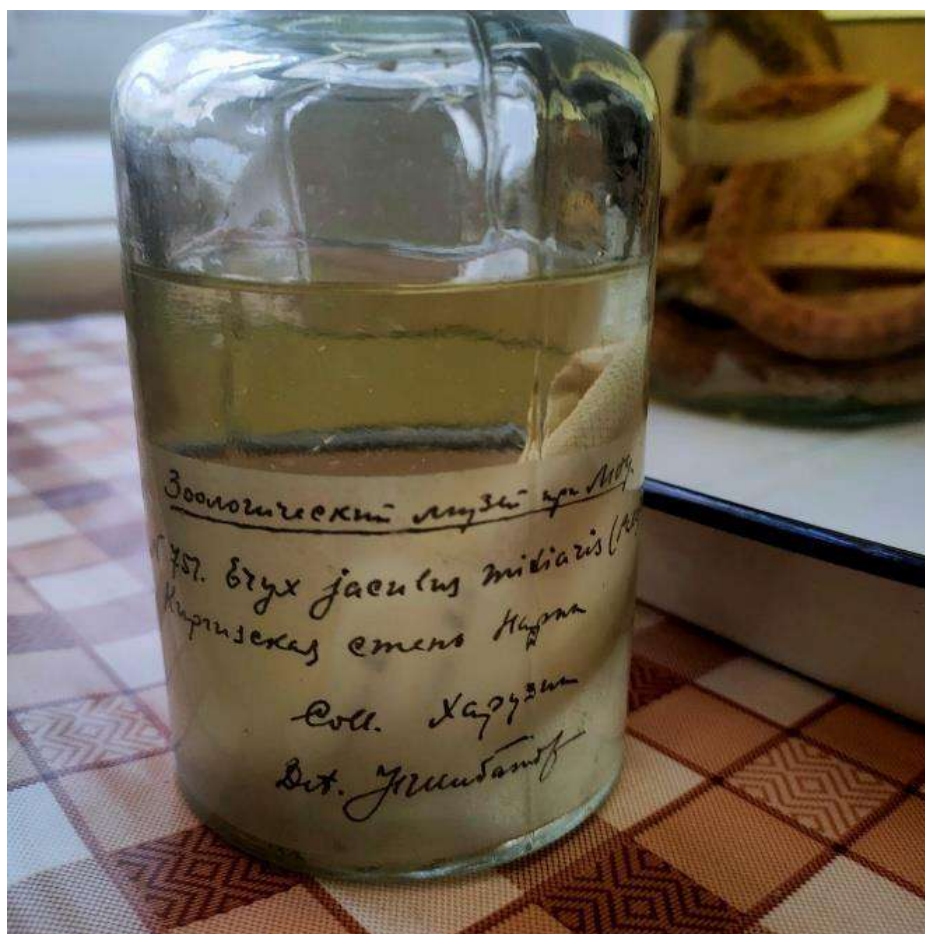 Зоологический музей при МГУ.
№ 751. Eryx jaculus miliaris (
Киргизская степь Нарын
Coll. Харузин
Det.